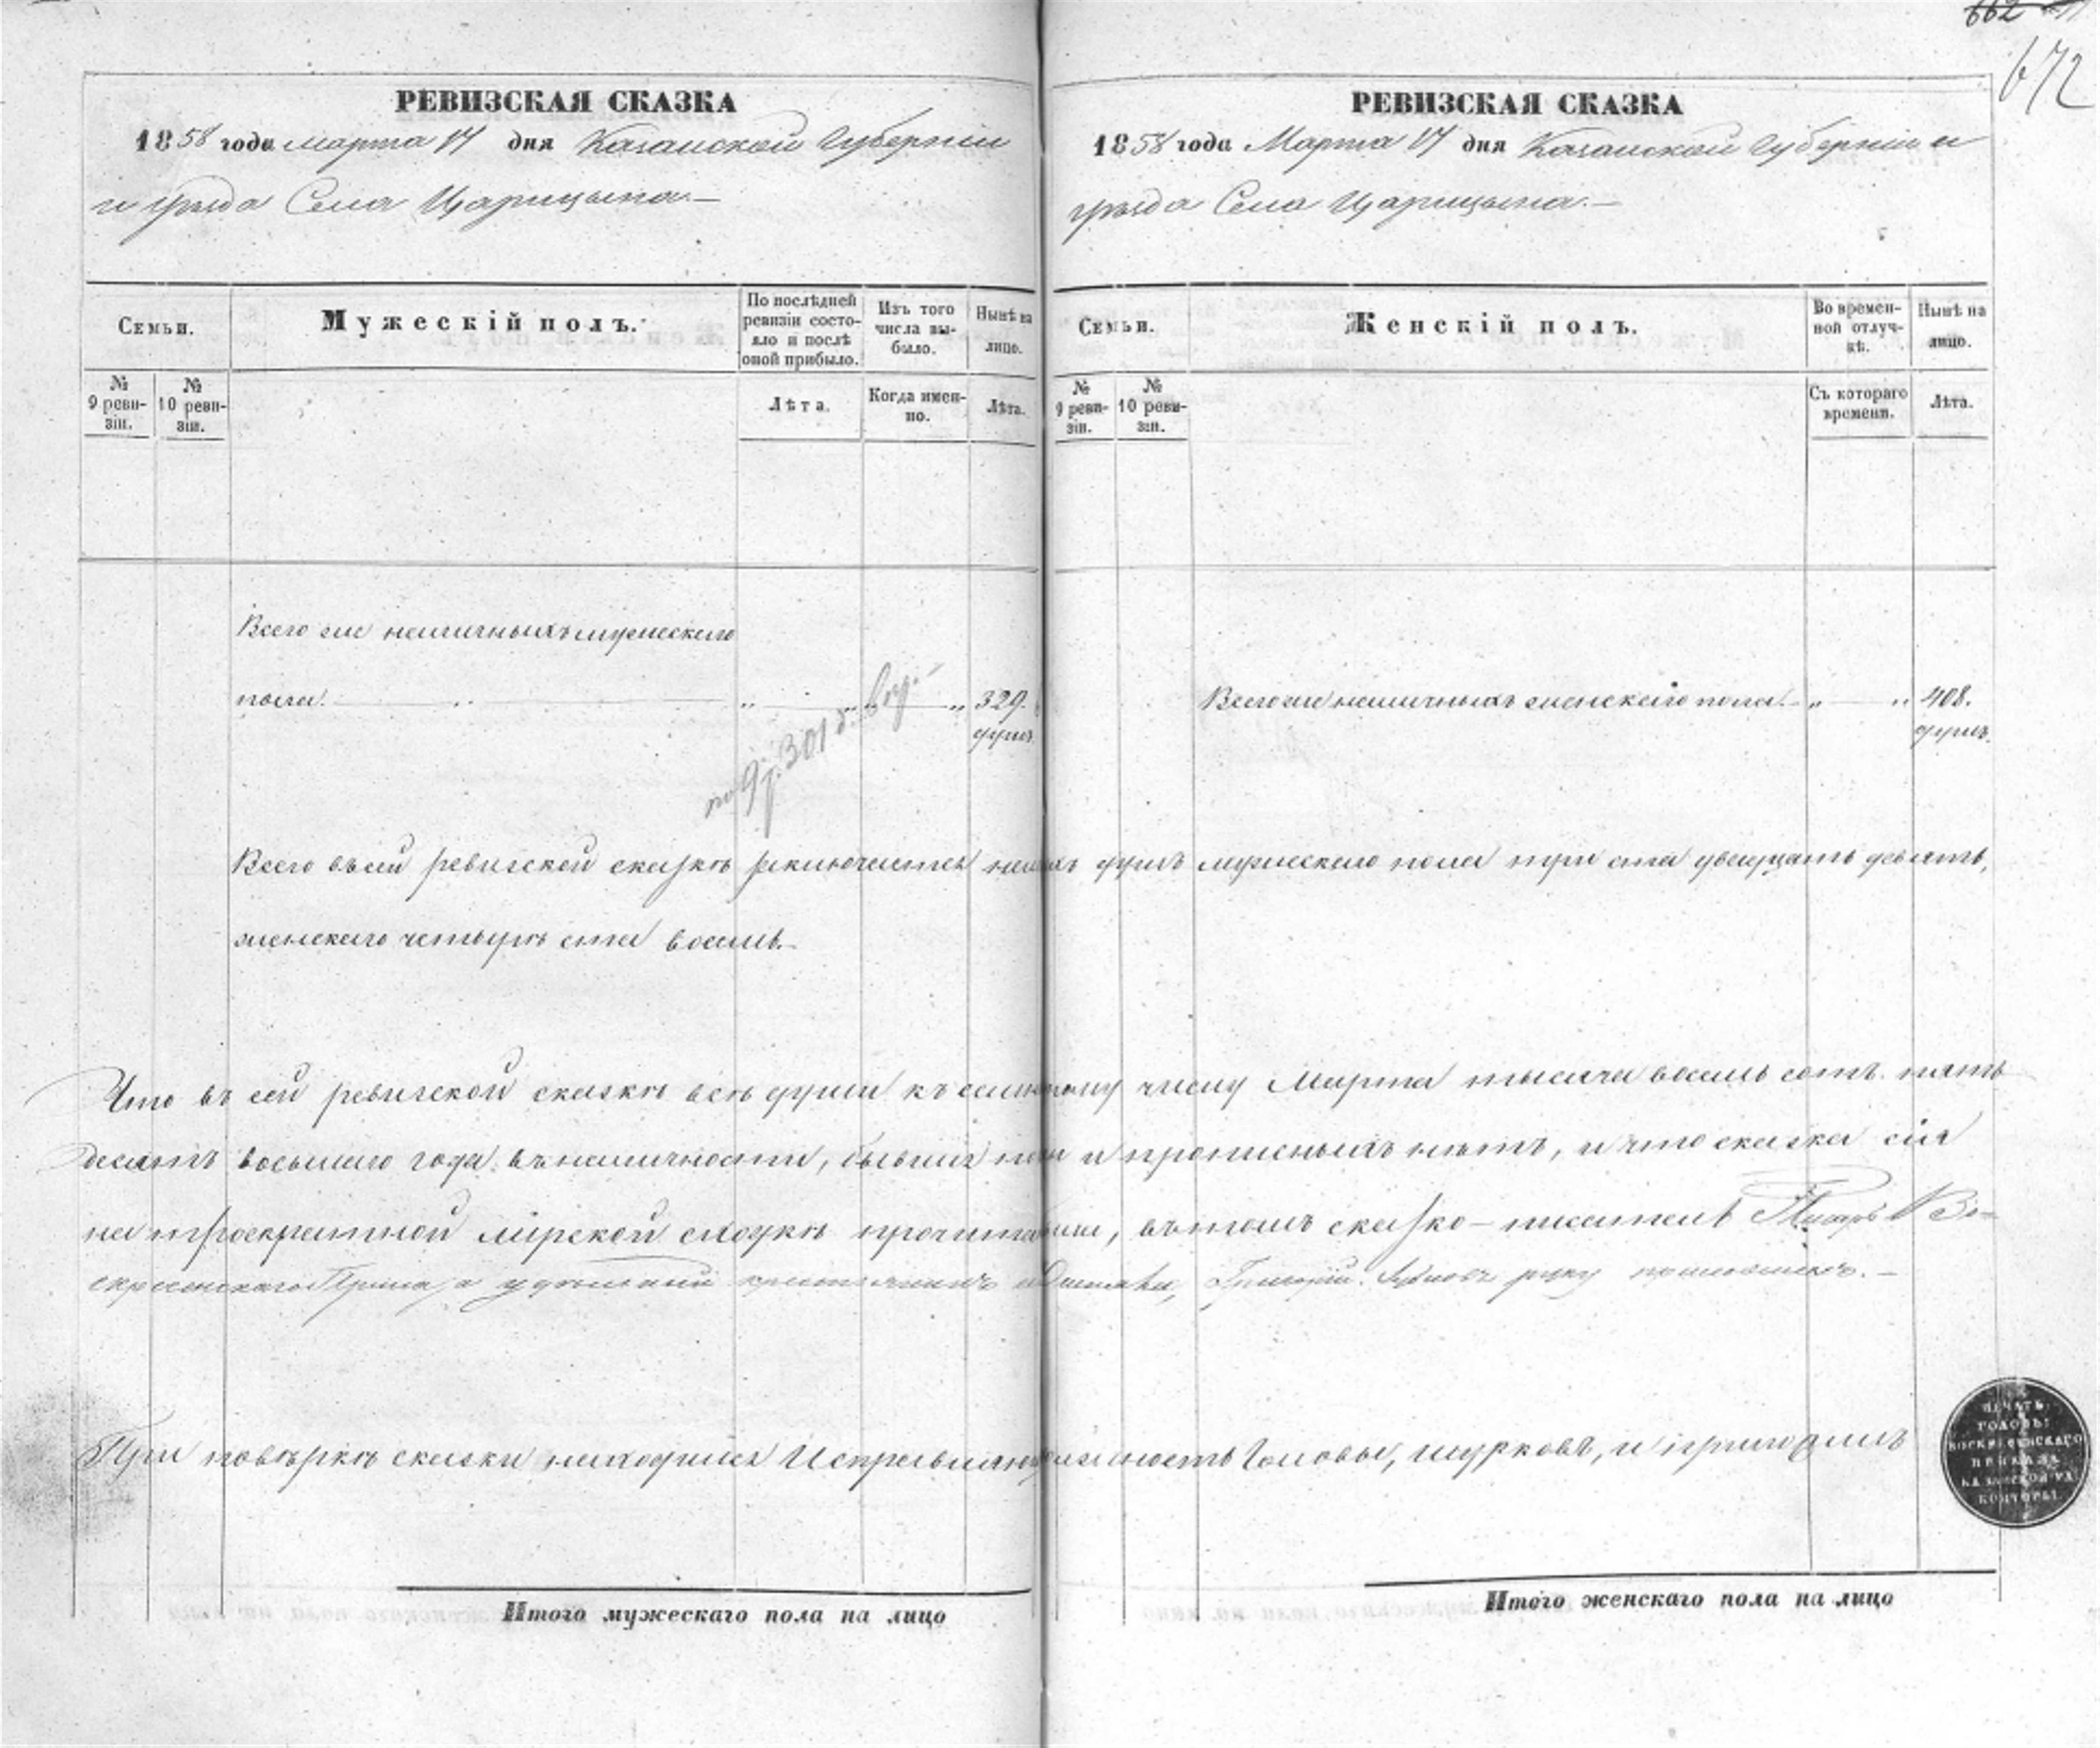 662
672
РЕВИЗСКАЯ СКАЗКА
1858 года Марта 17 дня Казанской Губерніи
и уѣзда Села Царицына.—
Семьи.
Мужескій полъ.
По послѣдней ревизіи состояло и послѣ оной прибыло.
Изъ того числа выбыло.
Нынѣ на лицо.
№ 9 ревизіи.
№ 10 ревизіи.
Лѣта.
Когда именно.
Лѣта.
Всего же наличныхъ мужескаго
пола. 329.
душъ
по 9 р. 301 д.
РЕВИЗСКАЯ СКАЗКА
1858 года Марта 17 дня Казанской Губерніи и
уѣзда Села Царицына.—
Семьи.
Женскій полъ.
Во временной отлучкѣ.
Нынѣ на лицо.
№ 9 ревизіи.
№ 10 ревизіи.
Съ котораго времени.
Лѣта.
Всего же наличныхъ женскаго пола. 408.
душъ.
Всего въ сей ревизской сказкѣ заключается душъ мужескаго пола три ста двадцать девять,
женскаго четыре ста восемь.
Что въ сей ревизской сказкѣ всѣ души къ числу Марта тысяча восемь сотъ пять
десятъ восьмаго года въ наличности, и прописныхъ нѣтъ, и что сказка сія
на мірской сходкѣ прочитана, въ томъ сказко-писатель Во-
скресенскаго Приказа удѣльный крестьянинъ Григорій руку приложилъ.—
При повѣркѣ сказки находился Исправляющій должность Головы, Шурковъ, и
ПЕЧАТЬ
ГОЛОВЫ
ВОСКРЕСЕНСКАГО
ПРИКАЗА
КАЗАНСКОЙ УД.
КОНТОРЫ
Итого мужескаго пола на лицо
Итого женскаго пола на лицо